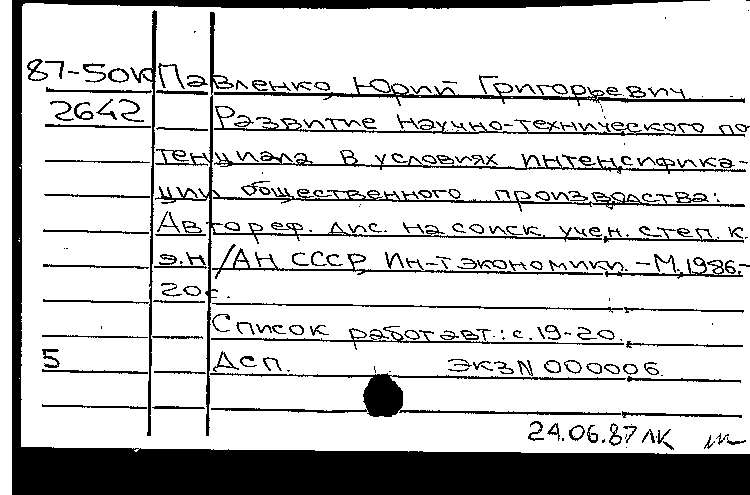 87-50к Павленко, Юрий Григорьевич
2642 Развитие научно-технического по
тенциала в условиях интенсифика-
ции общественного производства:
Автореф. дис. на соиск. учен. степ. к.
э.н /АН СССР, Ин-т экономики. -М, 1986.-
20с.
Список работ авт.: с. 19-20.
5 Дсп. ЭКЗ N 000006.
24.06.87 ЛК